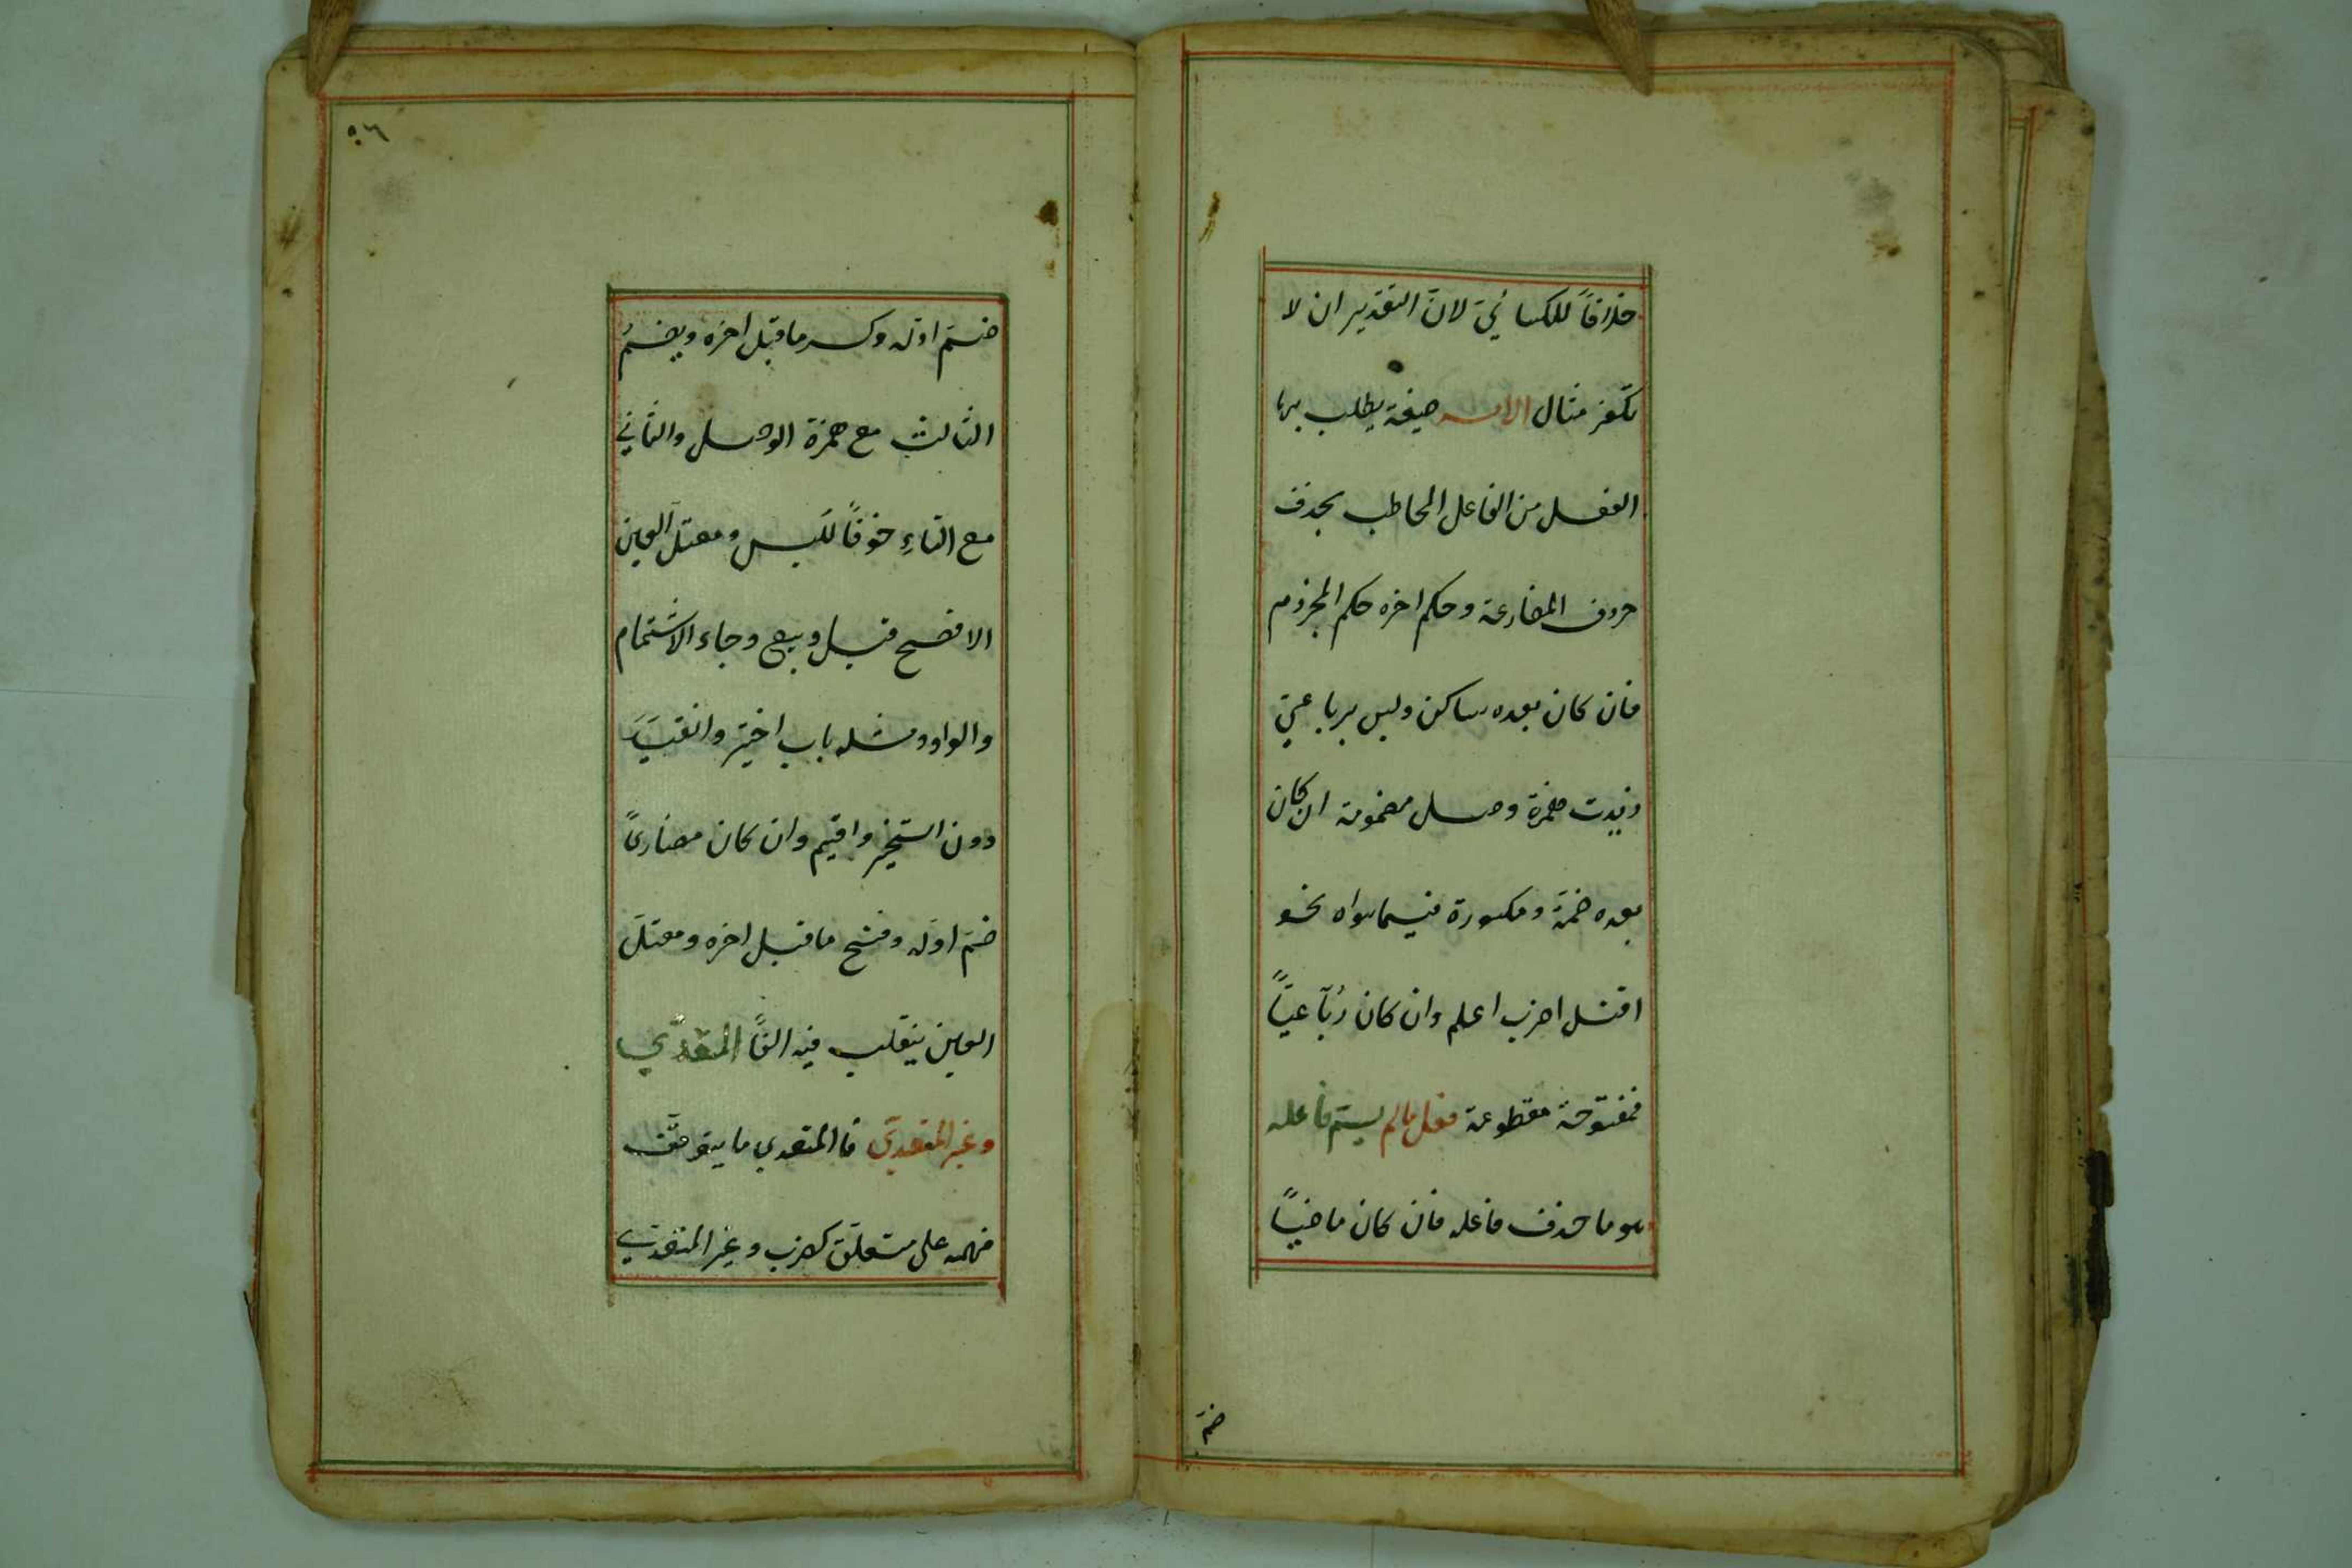 خلافاً للكسائيّ لانّ التقدير ان لا
تكفر مثال الامر صيغة يطلب بها
الفعل من الفاعل المخاطب بحذف
حروف المضارعة وحكم اخره حكم المجزوم
فان كان بعده ساكن وليس برباعيّ
زيدت همزة وصل مضمومة ان كان
بعده ضمّة ومكسورة فيما سواه نحو
اقتل اضرب اعلم وان كان رُباعيّاً
فمفتوحة مقطوعة فعل مالم يسمّ فاعله
هو ما حذف فاعله فان كان ماضيّاً
ضمّ
٥٦
ضمّ اوّله وكسر ما قبل اخره ويضمُّ
الثالث مع همزة الوصل والثاني
مع التاءِ خوفاً للبس ومعتلّ العين
الافصح قيل وبيع وجاء الاشمام
والواو ومثله باب اختير وانقيد
دون استخير واقيم وان كان مضارعاً
ضمّ اوّله وفتح ما قبل اخره ومعتلّ
العين ينقلب فيه الفاً المتعدّي
وغير المتعدّي فاالمتعدي ما يتوقّف
فهمه على متعلّق كضرب وغير المتعدّي